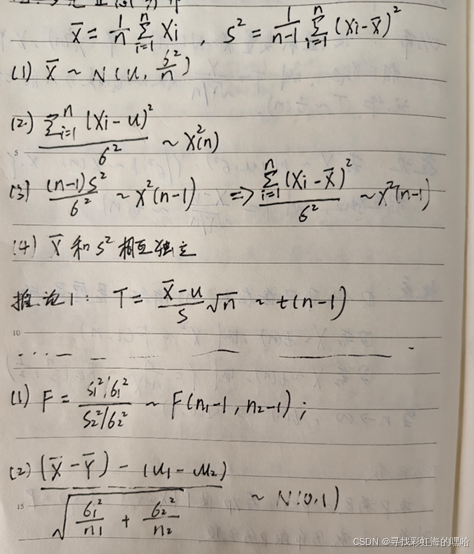 x̄ = 1/n Σ_{i=1}^{n} Xi , S² = 1/(n-1) Σ_{i=1}^{n} (Xi-x̄)²
(1) X̄ ~ N(u, σ²/n)
(2) Σ_{i=1}^{n} (Xi-u)² / σ² ~ X²(n)
5
(3) (n-1)S² / σ² ~ X²(n-1) => Σ_{i=1}^{n} (Xi-X̄)² / σ² ~ X²(n-1)
(4) X̄ 和 S² 相互独立
推论1: T = (X̄-u)/S √n ~ t(n-1)
10
(1) F = (S1²/σ1²) / (S2²/σ2²) ~ F(n1-1, n2-1) ;
(2) ((X̄-Ȳ) - (u1-u2)) / √(σ1²/n1 + σ2²/n2) ~ N(0,1)
15
CSDN @寻找彩虹海的嘿哈